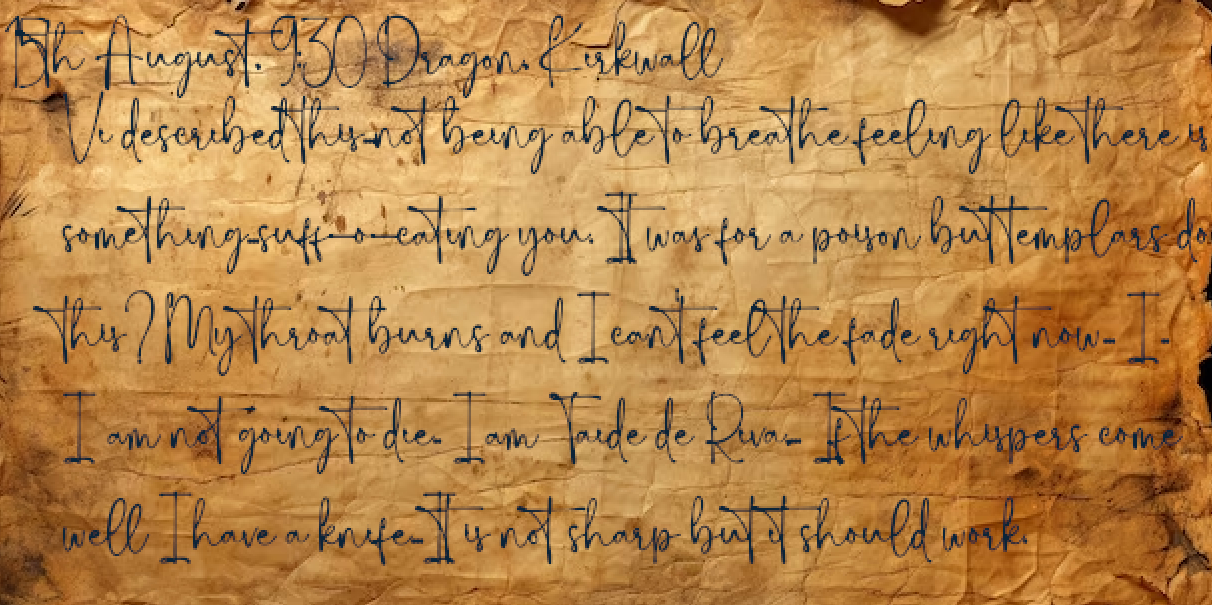 15th August. 9:30 Dragon. Kirkwall
Vi described this-not being able to breathe feeling like there is
something-suff-o-cating you. It was for a poison but templars do
this? My throat burns and I can't feel the fade right now- I-
I am not going to die. I am Taide de Riva- If the whispers come
well I have a knife-It is not sharp but it should work.